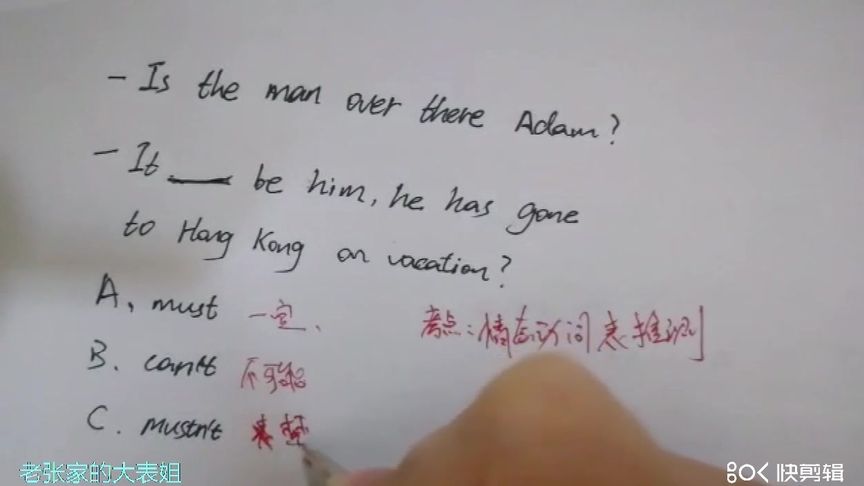 - Is the man over there Adam?
- It ___ be him, he has gone
to Hong Kong on vacation?
A. must 一定、
考点:情态动词表推测
B. can't 不可能
C. mustn't 表禁
老张家的大表姐
快剪辑